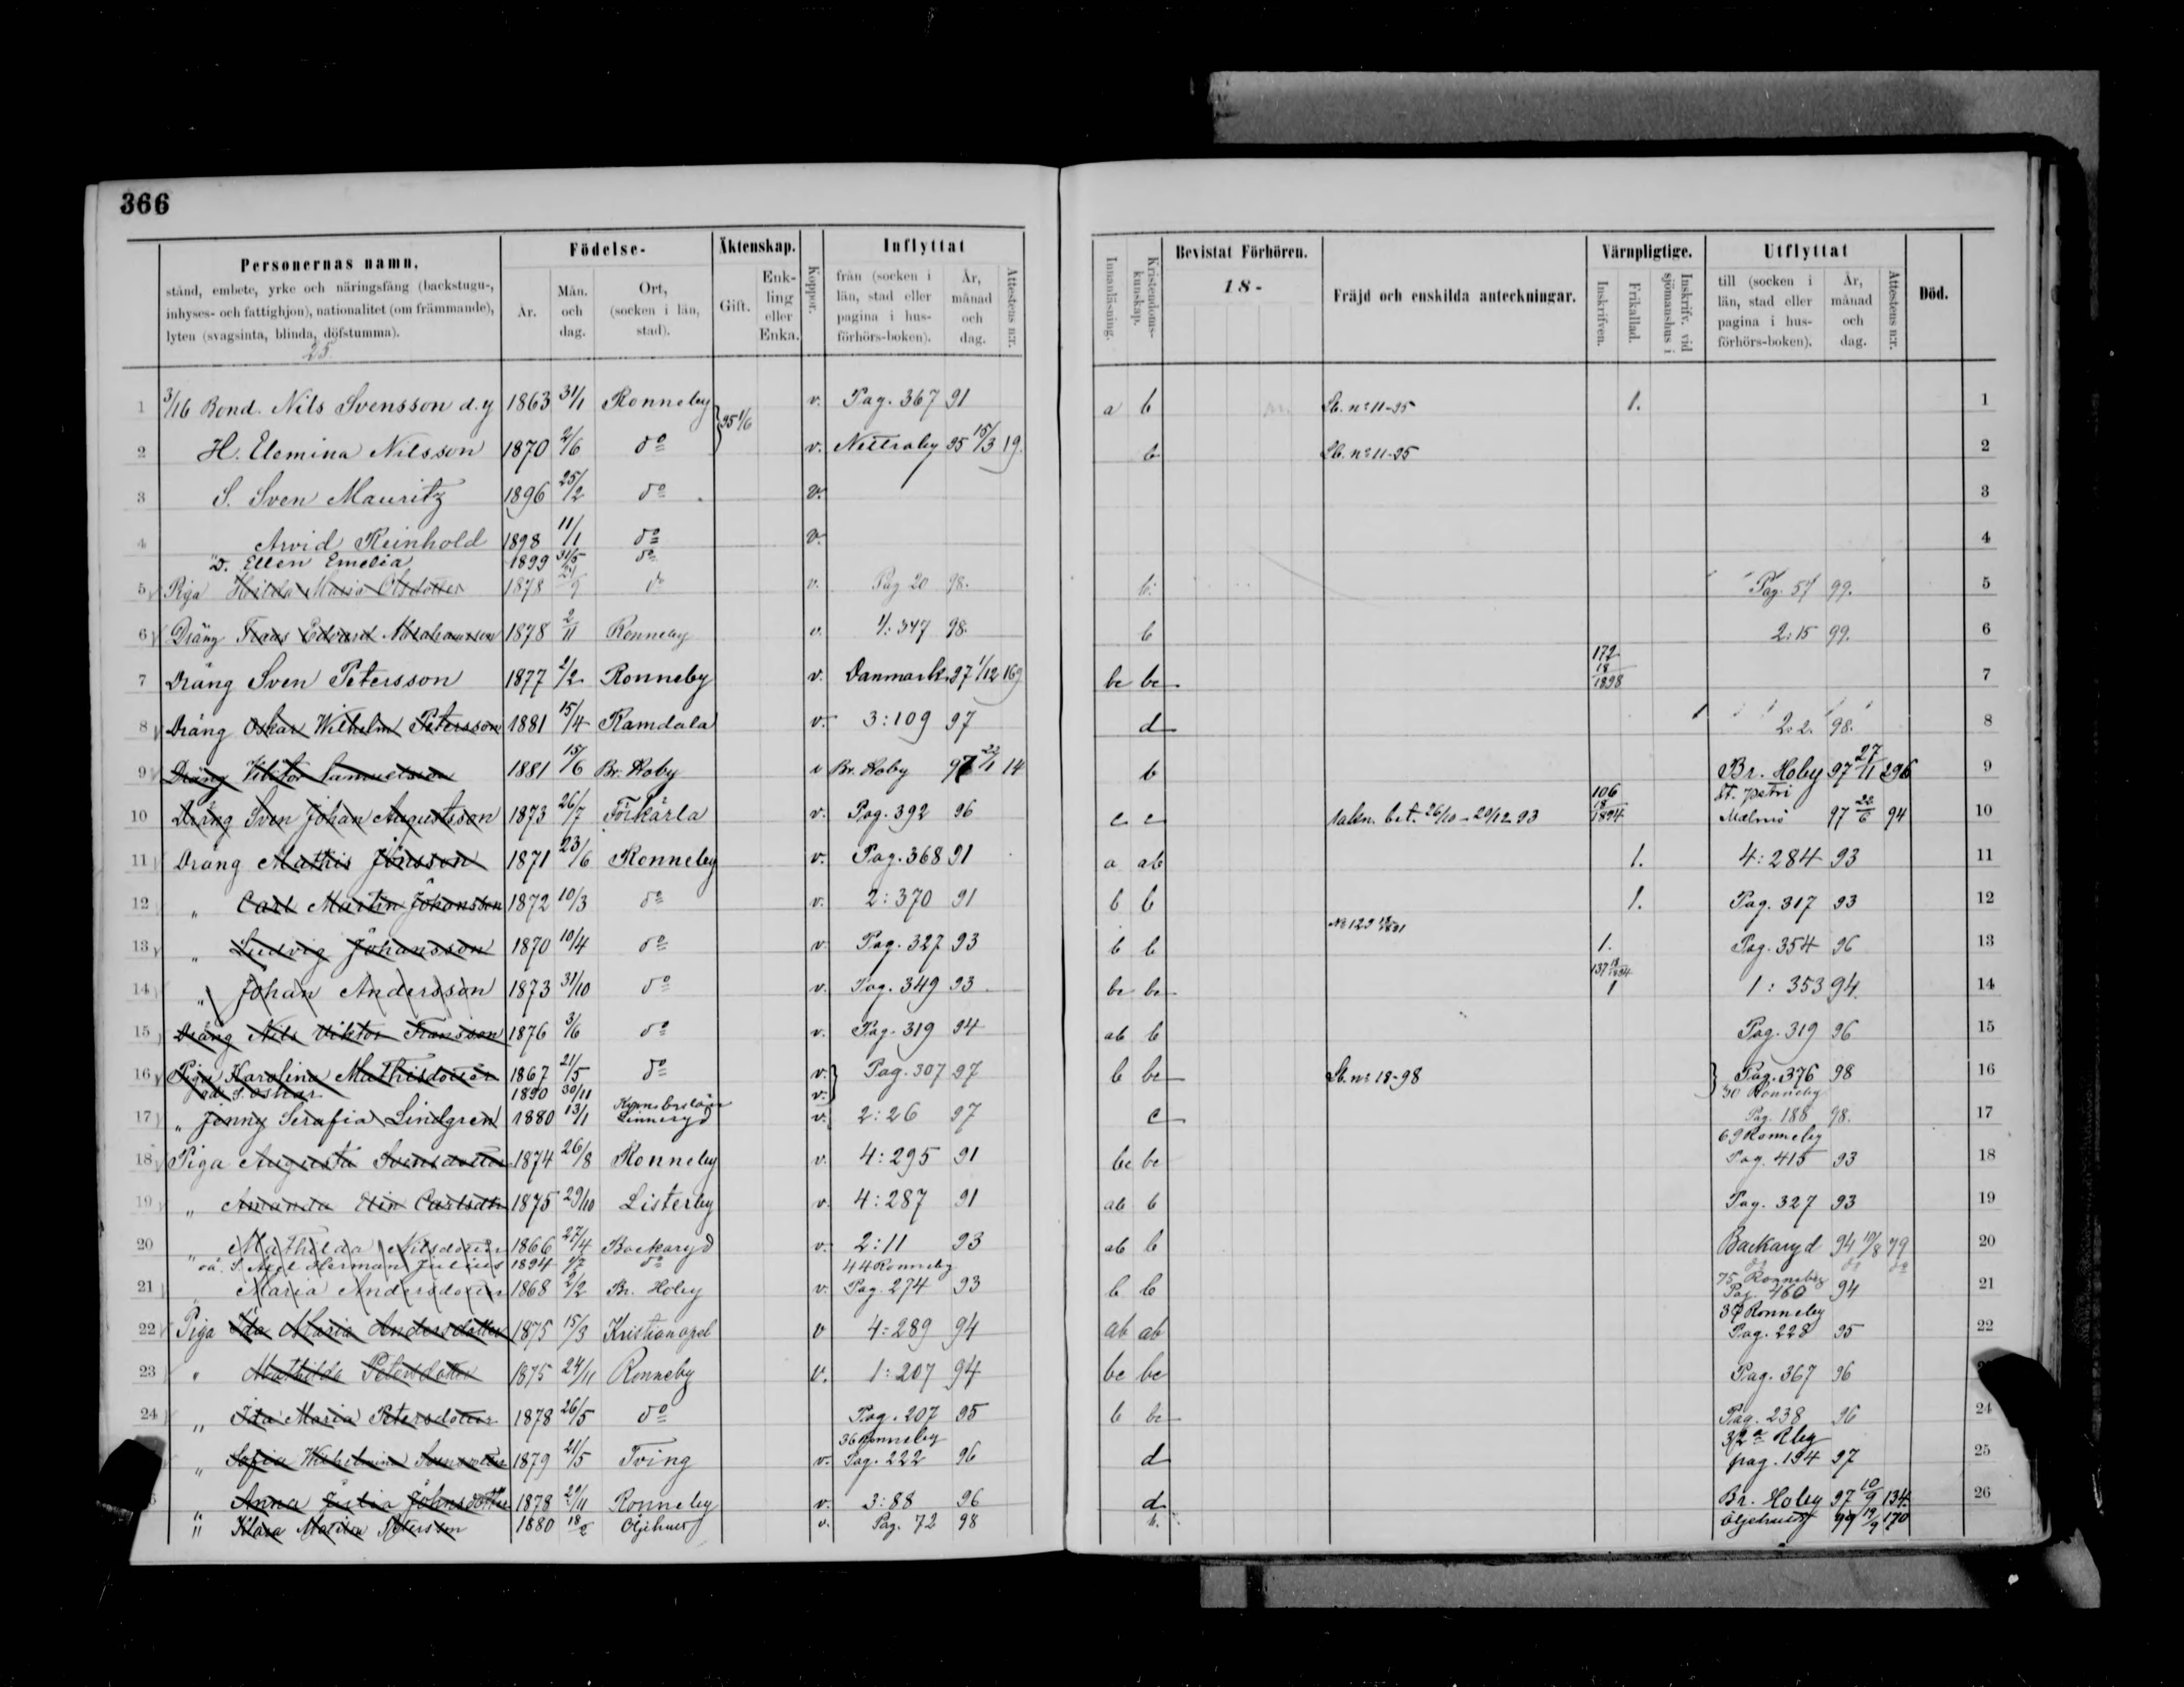 366
Personernas namn,
stånd, embete, yrke och näringsfång (backstugu-,
inhyses- och fattighjon), nationalitet (om främmande),
lyten (svagsinta, blinda, döfstumma).
25.
Födelse-
År.
Mån. och dag.
Ort, (socken i län, stad).
Äktenskap.
Gift.
Enk- ling eller Enka.
Koppor.
Inflyttat
från (socken i län, stad eller pagina i hus- förhörs-boken).
År, månad och dag.
Attestens n:r.
Innanläsning.
Kristendoms- kunskap.
Bevistat Förhören.
18-
Fräjd och enskilda anteckningar.
Värnpligtige.
Inskrifven.
Frikallad.
Inskrifv. vid sjömanshus i
Utflyttat
till (socken i län, stad eller pagina i hus- förhörs-boken).
År, månad och dag.
Attestens n:r.
Död.
1 3/16 Bond. Nils Svensson d.y 1863 31/1 Ronneby } 95 1/6 v. Pag. 367 91 a b Lb. nº 11-95 1. 1
2 H. Elemina Nilsson 1870 2/6 dº v. Nettraby 95 15/3 19. b Lb. nº 11-95 2
3 S. Sven Mauritz 1896 25/2 dº v. 3
4 Arvid Reinhold 1898 11/1 dº v. 4
"D. Ellen Emelia 1899 31/5 dº
5 Piga Hilda Maria Olsdotter 1878 dº v. Pag 20 98. b. Pag. 57 99. 5
6 Dräng Frans Edvard Abrahamsson 1878 2/11 Ronneby v. 1: 347 98. b 2:15 99. 6
172
7 Dräng Sven Petersson 1877 2/2 Ronneby v. Danmark 97 1/12 169 bc bc 18/1898 7
8 Dräng Oskar Wilhelm Petersson 1881 15/4 Ramdala v. 3:109 97 d 2:2. 98. 8
9 Dräng Viktor Samuelsson 1881 15/6 Br. Hoby v Br. Hoby 97 22/1 14 b Br. Hoby 97 27/11 296 9
106 St. Petri
10 Dräng Sven Johan Augustsson 1873 26/7 Förkärla v. Pag. 392 96 c c 26/10 - 20/12 93 18/1894 Malmö 97 22/6 94 10
11 Dräng Mathis Jönsson 1871 23/6 Ronneby v. Pag. 368 91 a ab 1. 4:284 93 11
12 " Carl Martin Johansson 1872 10/3 dº v. 2:370 91 b b 1. Pag. 317 93 12
Nº 129 18/1891
13 " Ludvig Johansson 1870 10/4 dº v. Pag. 327 93 b b 1. Pag. 354 96 13
137 18/1894
14 " Johan Andersson 1873 31/10 dº v. Pag. 349 93 bc bc 1 1: 353 94. 14
15 Dräng Nils Viktor Fransson 1876 3/6 dº v. Pag. 319 94 ab b Pag. 319 96 15
16 Piga Karolina Mathisdotter 1867 21/5 dº v. } Pag. 307 97 b bc Lb. nº 18-98 } Pag. 376 98 16
oä S. Oskar 1890 30/11 v. 30 Ronneby
17 " Jenny Serafia Lindgren 1880 13/1 Linneryd v. 2:26 97 c Pag. 188 98. 17
69 Ronneby
18 Piga Augusta Svensdotter 1874 26/8 Ronneby v. 4:295 91 bc bc Pag. 415 93 18
19 " Amanda Elin Carlsdtr 1875 29/10 Listerby v. 4:287 91 ab b Pag. 327 93 19
20 " Mathilda Nilsdotter 1866 27/4 Backaryd v. 2:11 93 ab b Backaryd 94 10/8 79 20
" oä. S. Axel Herman Julius 1894 dº 44 Ronneby dº dº dº
75 Ronneby
21 " Maria Andersdotter 1868 2/2 Br. Hoby v. Pag. 274 93 b b Pag. 460 94 21
37 Ronneby
22 Piga Ida Maria Andersdotter 1875 15/3 Kristianopel v 4:289 94 ab ab Pag. 228 95 22
23 " Mathilda Petersdotter 1875 24/11 Ronneby v. 1:207 94 bc bc Pag. 367 96
24 " Ida Maria Petersdotter 1878 26/5 dº Pag. 207 95 b bc Pag. 238 96 24
36 Ronneby 32ª Rby
" Sofia Wilhelmina Svensdotter 1879 21/5 Tving v. Pag. 222 96 d pag. 194 97 25
" Anna Julia Johnsdotter 1878 29/11 Ronneby v. 3:88 96 d Br. Hoby 97 10/9 134. 26
" Klara Matilda Petersson 1880 18/2 Öljehult v. Pag. 72 98 b. Öljehult 99 19/9 170